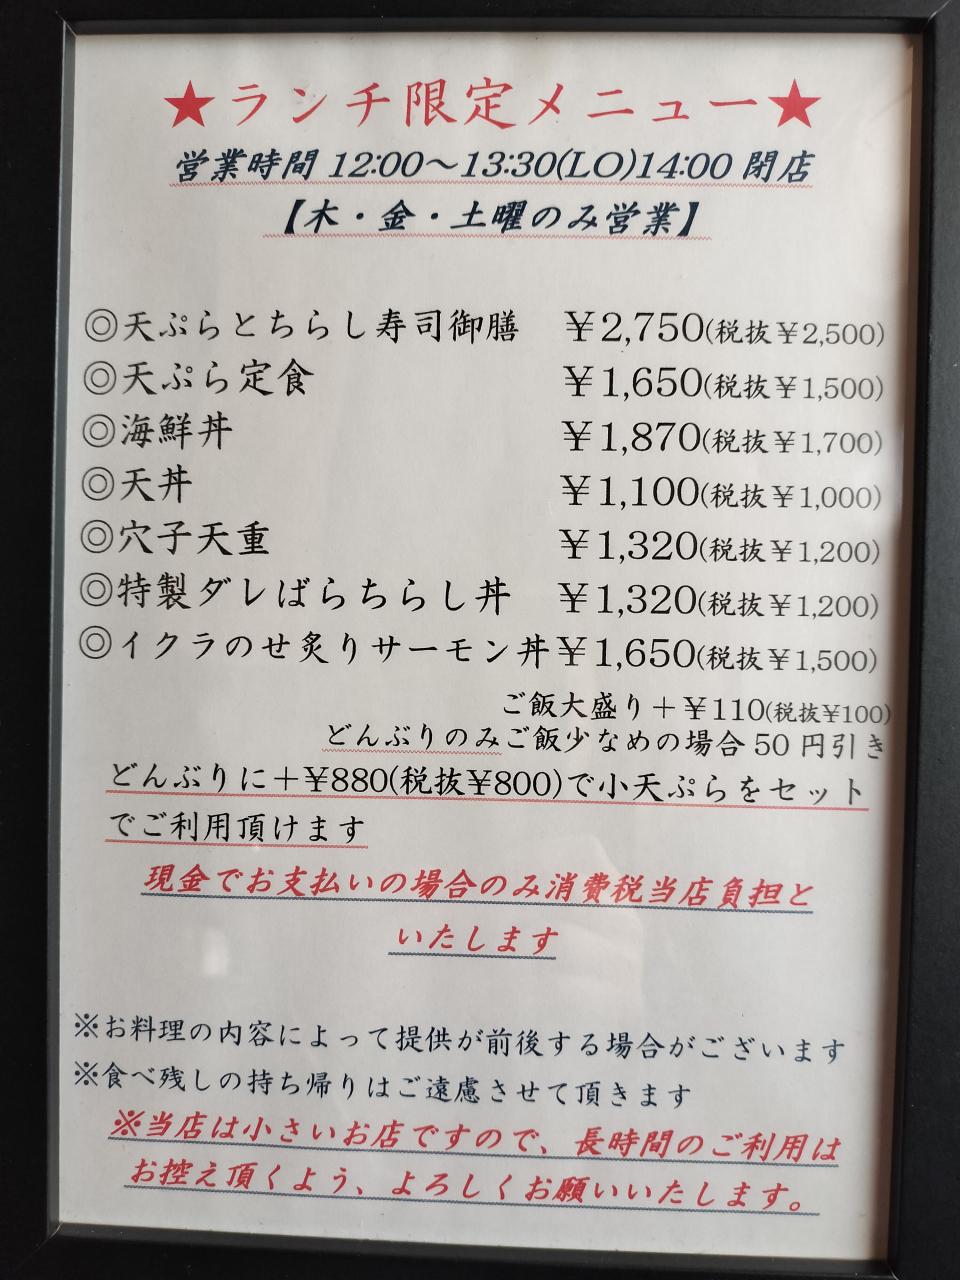 ★ランチ限定メニュー★
営業時間 12:00～13:30(LO)14:00 閉店
【木・金・土曜のみ営業】
◎天ぷらとちらし寿司御膳 ￥2,750(税抜￥2,500)
◎天ぷら定食 ￥1,650(税抜￥1,500)
◎海鮮丼 ￥1,870(税抜￥1,700)
◎天丼 ￥1,100(税抜￥1,000)
◎穴子天重 ￥1,320(税抜￥1,200)
◎特製ダレばらちらし丼 ￥1,320(税抜￥1,200)
◎イクラのせ炙りサーモン丼￥1,650(税抜￥1,500)
ご飯大盛り＋￥110(税抜¥100)
どんぶりのみご飯少なめの場合 50 円引き
どんぶりに＋¥880(税抜¥800)で小天ぷらをセット
でご利用頂けます
現金でお支払いの場合のみ消費税当店負担と
いたします
※お料理の内容によって提供が前後する場合がございます
※食べ残しの持ち帰りはご遠慮させて頂きます
※当店は小さいお店ですので、長時間のご利用は
お控え頂くよう、よろしくお願いいたします。